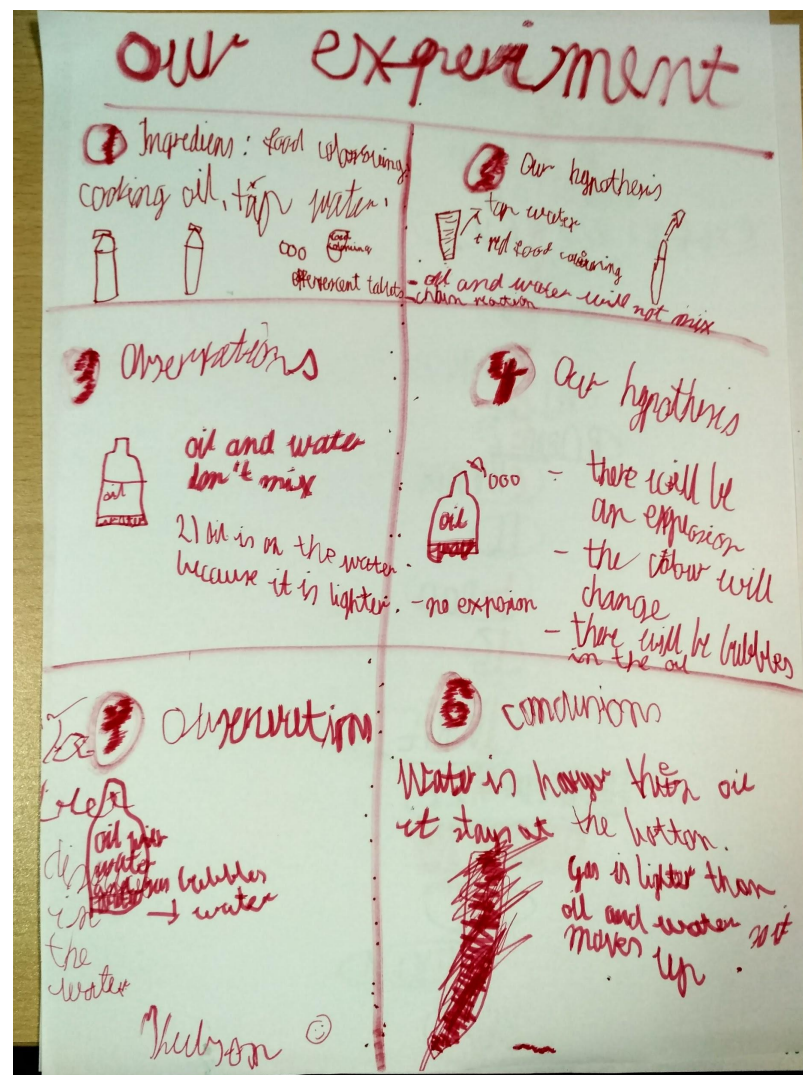 our experiment
1 Ingrediens: food colouring,
cooking oil, tap water.
food
colouring
effervescent tablets
2 Our hypothesis
tap water
+ red food colouring
- oil and water will not mix
- chain reaction
3 Observations
oil
oil and water
don't mix
2) oil is on the water
because it is lighter.
4 Our hypothesis
oil
water
- there will be
an explosion
- the colour will
change
- there will be bubbles
in the oil
- no explosion
Observation
oil
water
bubbles
→ water
in
the
water
6 conclusions
Water is than oil
it stays at the bottom.
Gas is lighter than
oil and water so it
moves up.